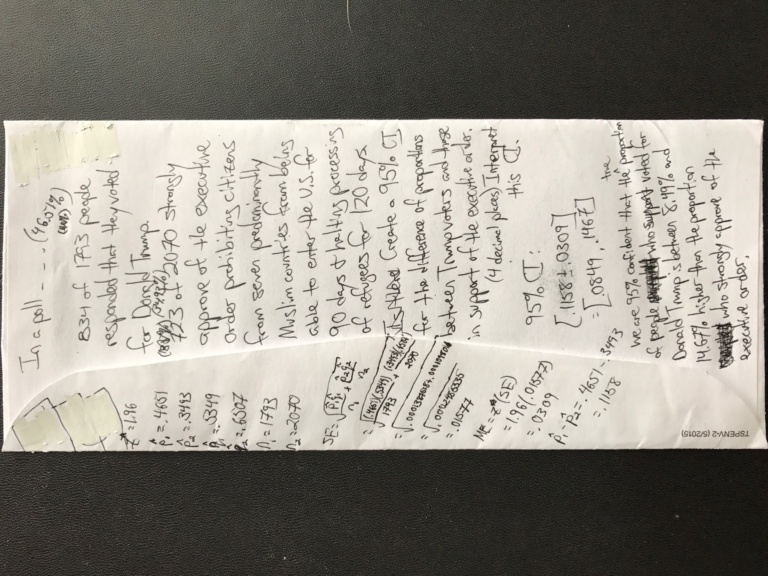 In a poll - - - (46.51%)
834 of 1793 people
responded that they voted
for Donald Trump.
723 of 2070 strongly
approve of the executive
order prohibiting citizens
from seven predominantly
Muslim countries from being
able to enter the U.S. for
90 days & halting processing
of refugees for 120 days.
Create a 95% CI
for the difference of proportions
between Trump voters and those
in support of the executive order.
(4 decimal places) Interpret
this CI.
95% CI:
[.1158 ± .0309]
= [.0849, .1467]
We are 95% confident that the proportion
of people who voted for
Donald Trump is between 8.49% and
14.67% higher than the proportion
who strongly approve of the
executive order.
z* = 1.96
p̂₁ = .4651
p̂₂ = .3493
q̂₁ = .5349
q̂₂ = .6507
n₁ = 1793
n₂ = 2070
SE = √ p̂₁q̂₁ + p̂₂q̂₂
n₁ n₂
= √ (.4651)(.5349) + (.3493)(.6507)
1793 2070
= .01577
ME = z* (SE)
= 1.96 (.01577)
= .0309
p̂₁ - p̂₂ = .4651 - .3493
= .1158
TSPENV-2 (5/2015)